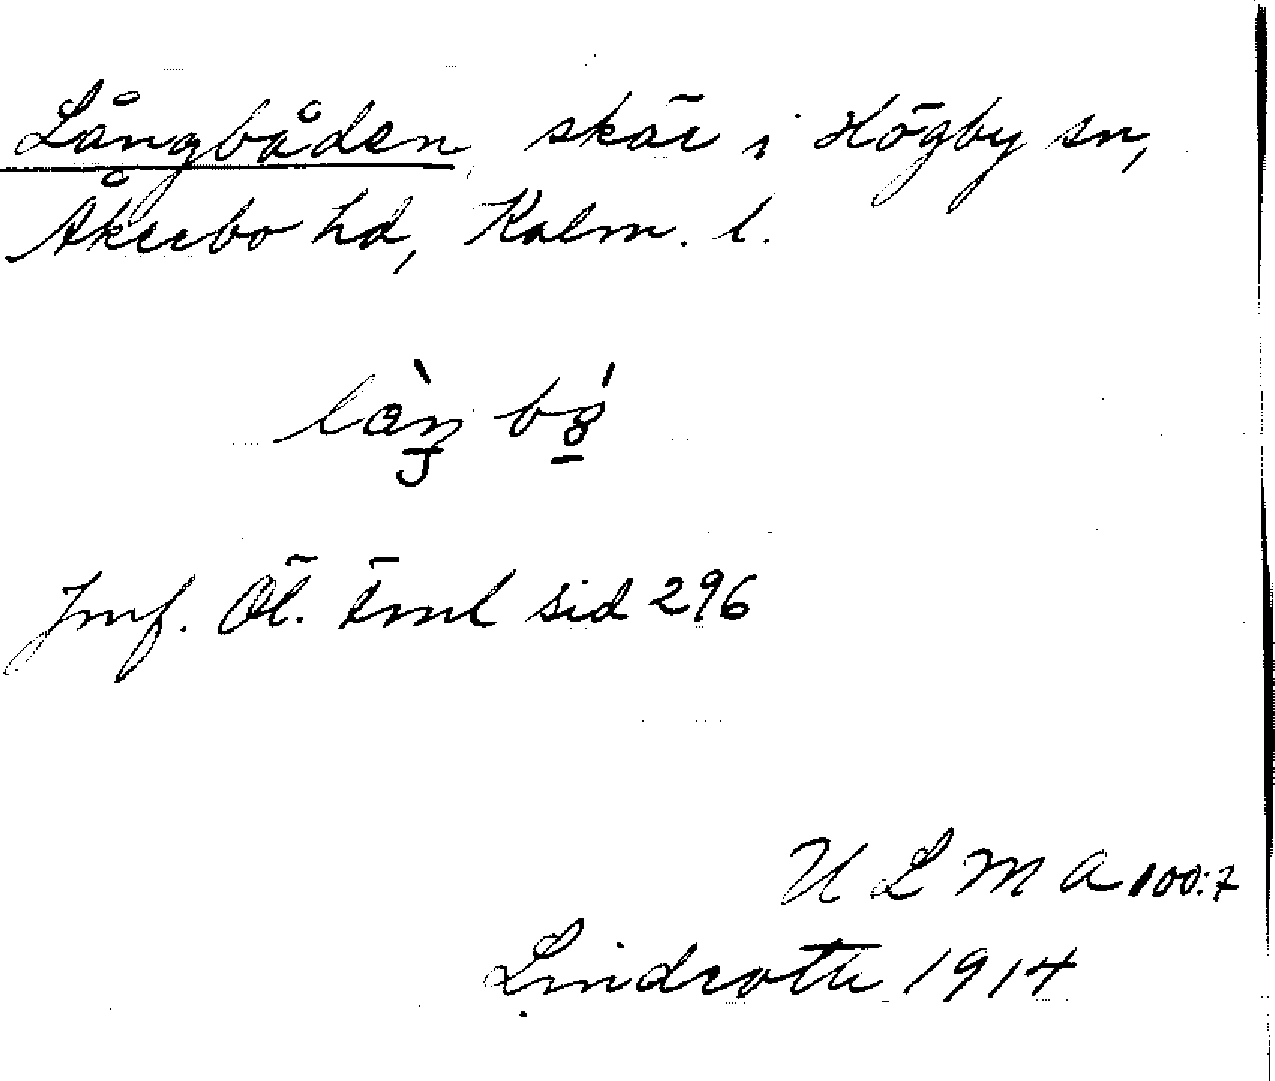 Långbåden, skär i Högby sn,
Åkerbo hd, Kalm. l.
Jmf. Öl. Fml sid 296
ULMA 100:7
Lindroth 1914